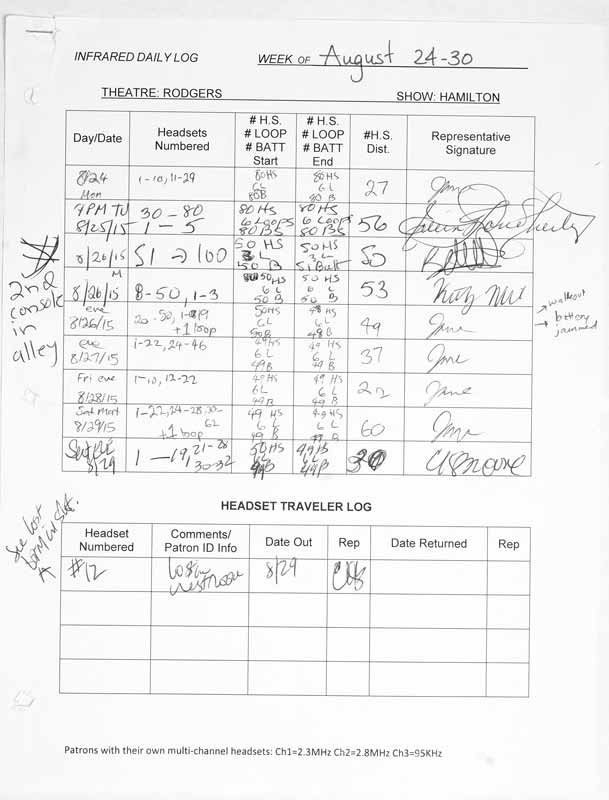 INFRARED DAILY LOG WEEK OF August 24-30
THEATRE: RODGERS SHOW: HAMILTON
Day/Date Headsets Numbered # H.S. # LOOP # BATT Start # H.S. # LOOP # BATT End #H.S. Dist. Representative Signature
8/24 Mon 1-10, 11-29 80HS 6L 80B 80HS 6L 80B 27
4PM TU 8/25/15 30-80 1-5 80 HS 6 Loops 80 BS 80 HS 6 Loops 80 BS 56
8/26/15 M 51 → 100 50 HS 3 L 50 B 50 HS 3 L 51 Batt 50
8/26/15 8-50, 1-3 50HS 6 L 50 B 50 HS 6 L 50 B 53
eve 8/26/15 20-50, 1-19 +1 loop 50HS 6L 50B 58 HS 6L 48B 49 Jane
eve 8/27/15 1-22, 24-46 49HS 6L 49B 49 HS 6L 49B 37 Jane
Fri eve 8/28/15 1-10, 12-22 49HS 6L 49B 49 HS 6L 49B 22 Jane
Sat Mat 8/29/15 1-22, 24-28, 30-62 +1 loop 49 HS 6 L 49 B 49HS 6 L 49 B 60 Jane
8/29 1-19, 21-28 30-32 50HS 6L 49B 49B 6L 49B 30
2nd
console
in
alley
→ walkout
→ battery
jammed
HEADSET TRAVELER LOG
See Lost
Form in
Headset Numbered Comments/ Patron ID Info Date Out Rep Date Returned Rep
#12 8/29
Patrons with their own multi-channel headsets: Ch1=2.3MHz Ch2=2.8MHz Ch3=95KHz